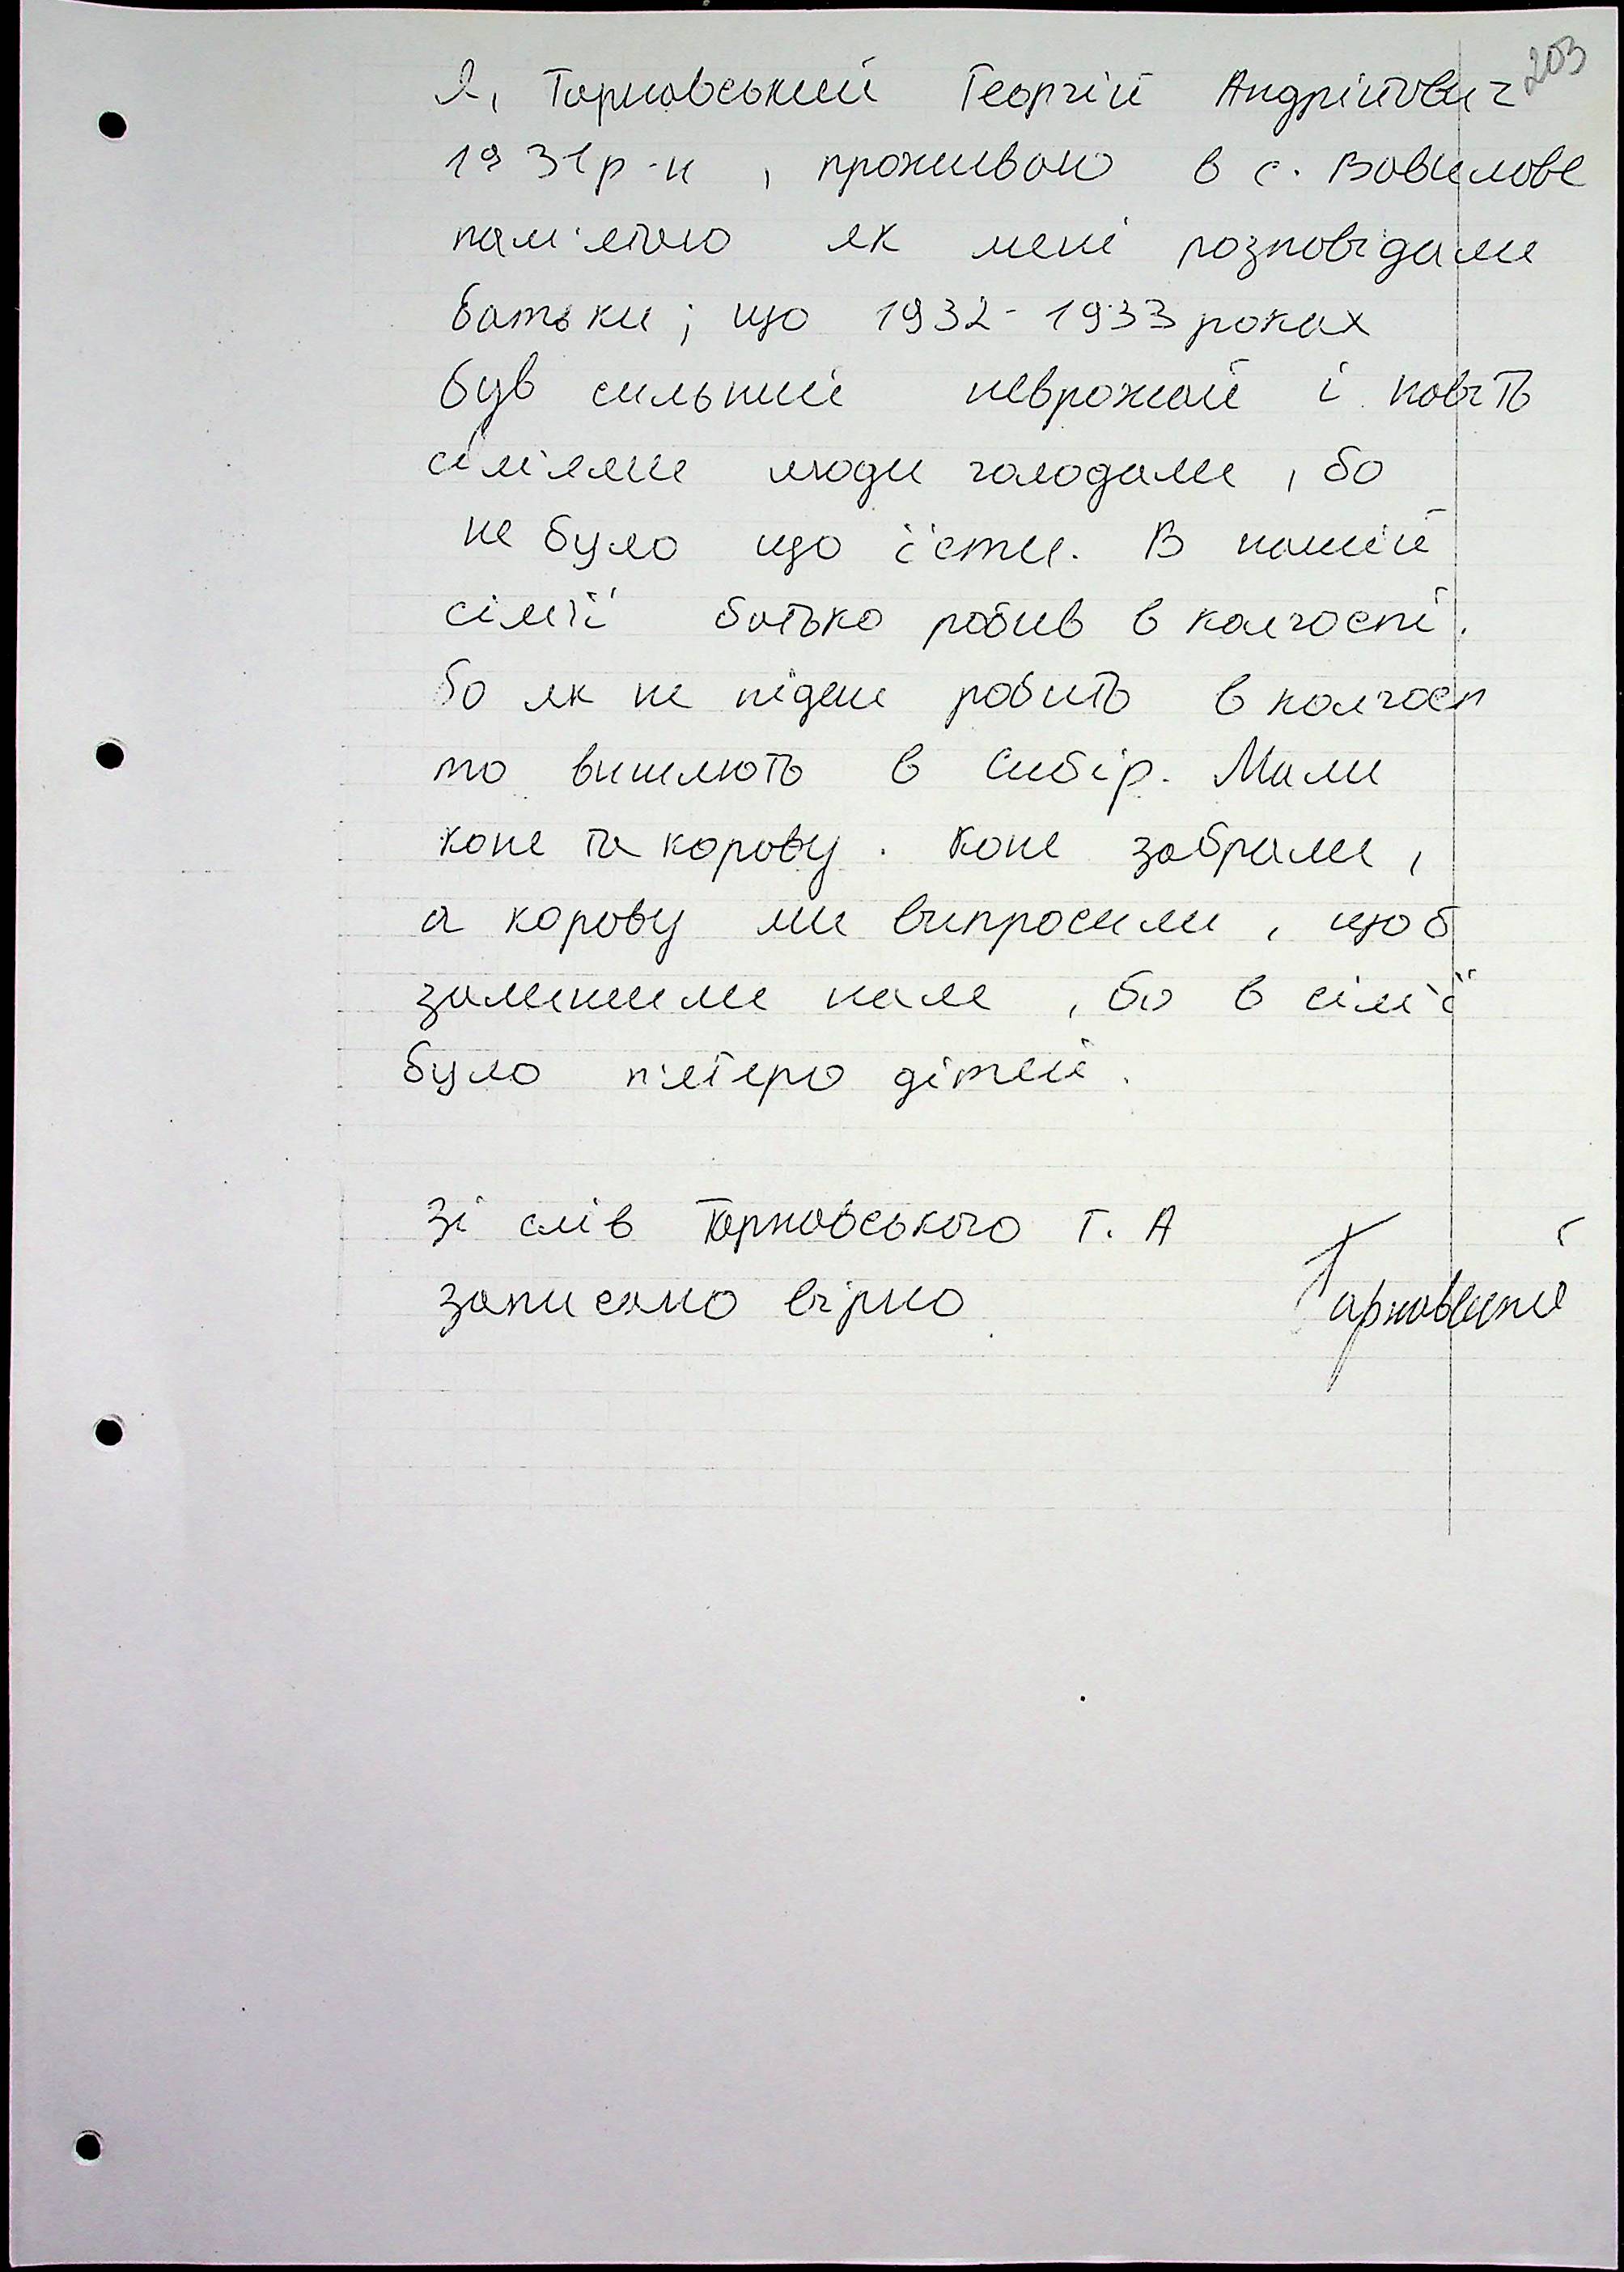 203
Я, Тарновський Георгій Андрійович
1931р-н, проживаю в с. Вавилове
пам'ятаю як мені розповідали
батьки; що 1932-1933 роках
був сильний неврожай і навіть
сім'ями люди голодали, бо
не було що їсти. В нашій
сім'ї батько робив в колгоспі.
бо як не підеш робить в колгосп
то вишлють в Сибір. Мали
коне та корову. Коне забрали,
а корову ми випросили, щоб
залишили нам, бо в сім'ї
було п'ятеро дітей.
Зі слів Тарновського Г. А
записано вірно Тарновський